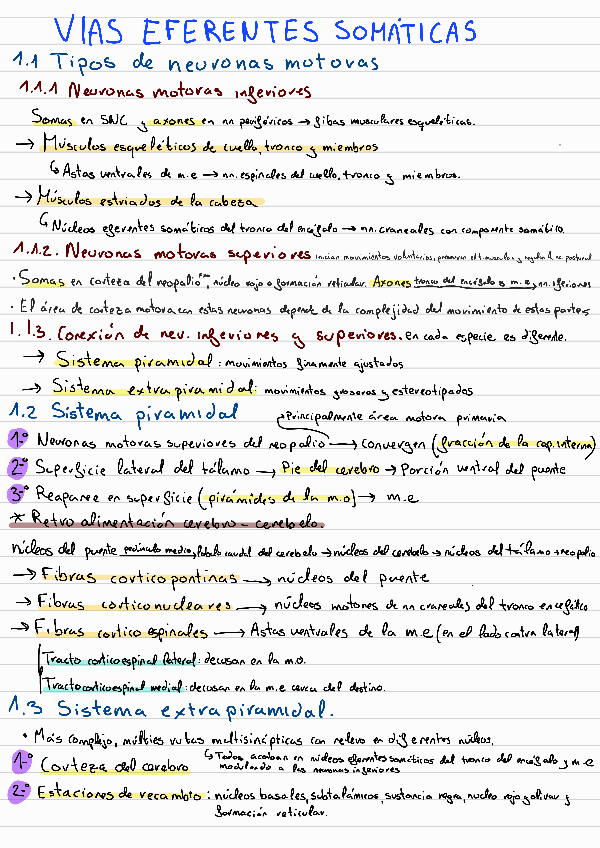 VIAS EFERENTES SOMÁTICAS
1.1 Tipos de neuronas motoras
1.1.1 Neuronas motoras inferiores
Somas en SNC y axones en nn periféricos → fibas musculares esqueléticas.
→ Músculos esqueléticos de cuello, tronco y miembros
↳ Astas ventrales de m.e → nn. espinales del cuello, tronco y miembros.
→ Músculos estriados de la cabeza
↳ Núcleos eferentes somáticos del tronco del encéfalo → nn. craneales con componente somático.
1.1.2. Neuronas motoras superiores inician movimientos voluntarios, y regulan la postural
· Somas en corteza del neopalio, núcleo rojo o formación reticular. Axones tronco del encéfalo o m.e, nn. inferiores
· El área de corteza motora con estas neuronas depende de la complejidad del movimiento de estas partes
1.1.3. Conexión de neu. inferiores y superiores. en cada especie es diferente.
→ Sistema piramidal: movimientos finamente ajustados
→ Sistema extrapiramidal: movimientos groseros y estereotipados
1.2 Sistema piramidal
→ Principalmente área motora primaria
1º Neuronas motoras superiores del neopalio → convergen (fracción de la cap. interna)
2º Superficie lateral del tálamo → Pie del cerebro → Porción ventral del puente
3º Reaparece en superficie (pirámides de la m.o) → m.e
* Retro alimentación cerebro-cerebelo.
Núcleos del puente pedúnculo medio, lóbulo caudal del cerebelo → núcleos del cerebelo → núcleos del tálamo → neopalio
→ Fibras corticopontinas → núcleos del puente
→ Fibras corticonucleares → núcleos motores de nn craneales del tronco encefálico
→ Fibras corticoespinales → Astas ventrales de la m.e (en el lado contralateral)
Tracto corticoespinal lateral: decusan en la m.o.
Tracto corticoespinal medial: decusan en la m.e cerca del destino.
1.3 Sistema extrapiramidal.
• Más complejo, múltiples rutas multisinápticas con relevo en diferentes núcleos.
↳ Todos acaban en núcleos eferentes somáticos del tronco del encéfalo y m.e
1º Corteza del cerebro
modulando a las neuronas inferiores
2º Estaciones de recambio: núcleos basales, subtalámicos, sustancia negra, nucleo rojo y olivar y
formación reticular.